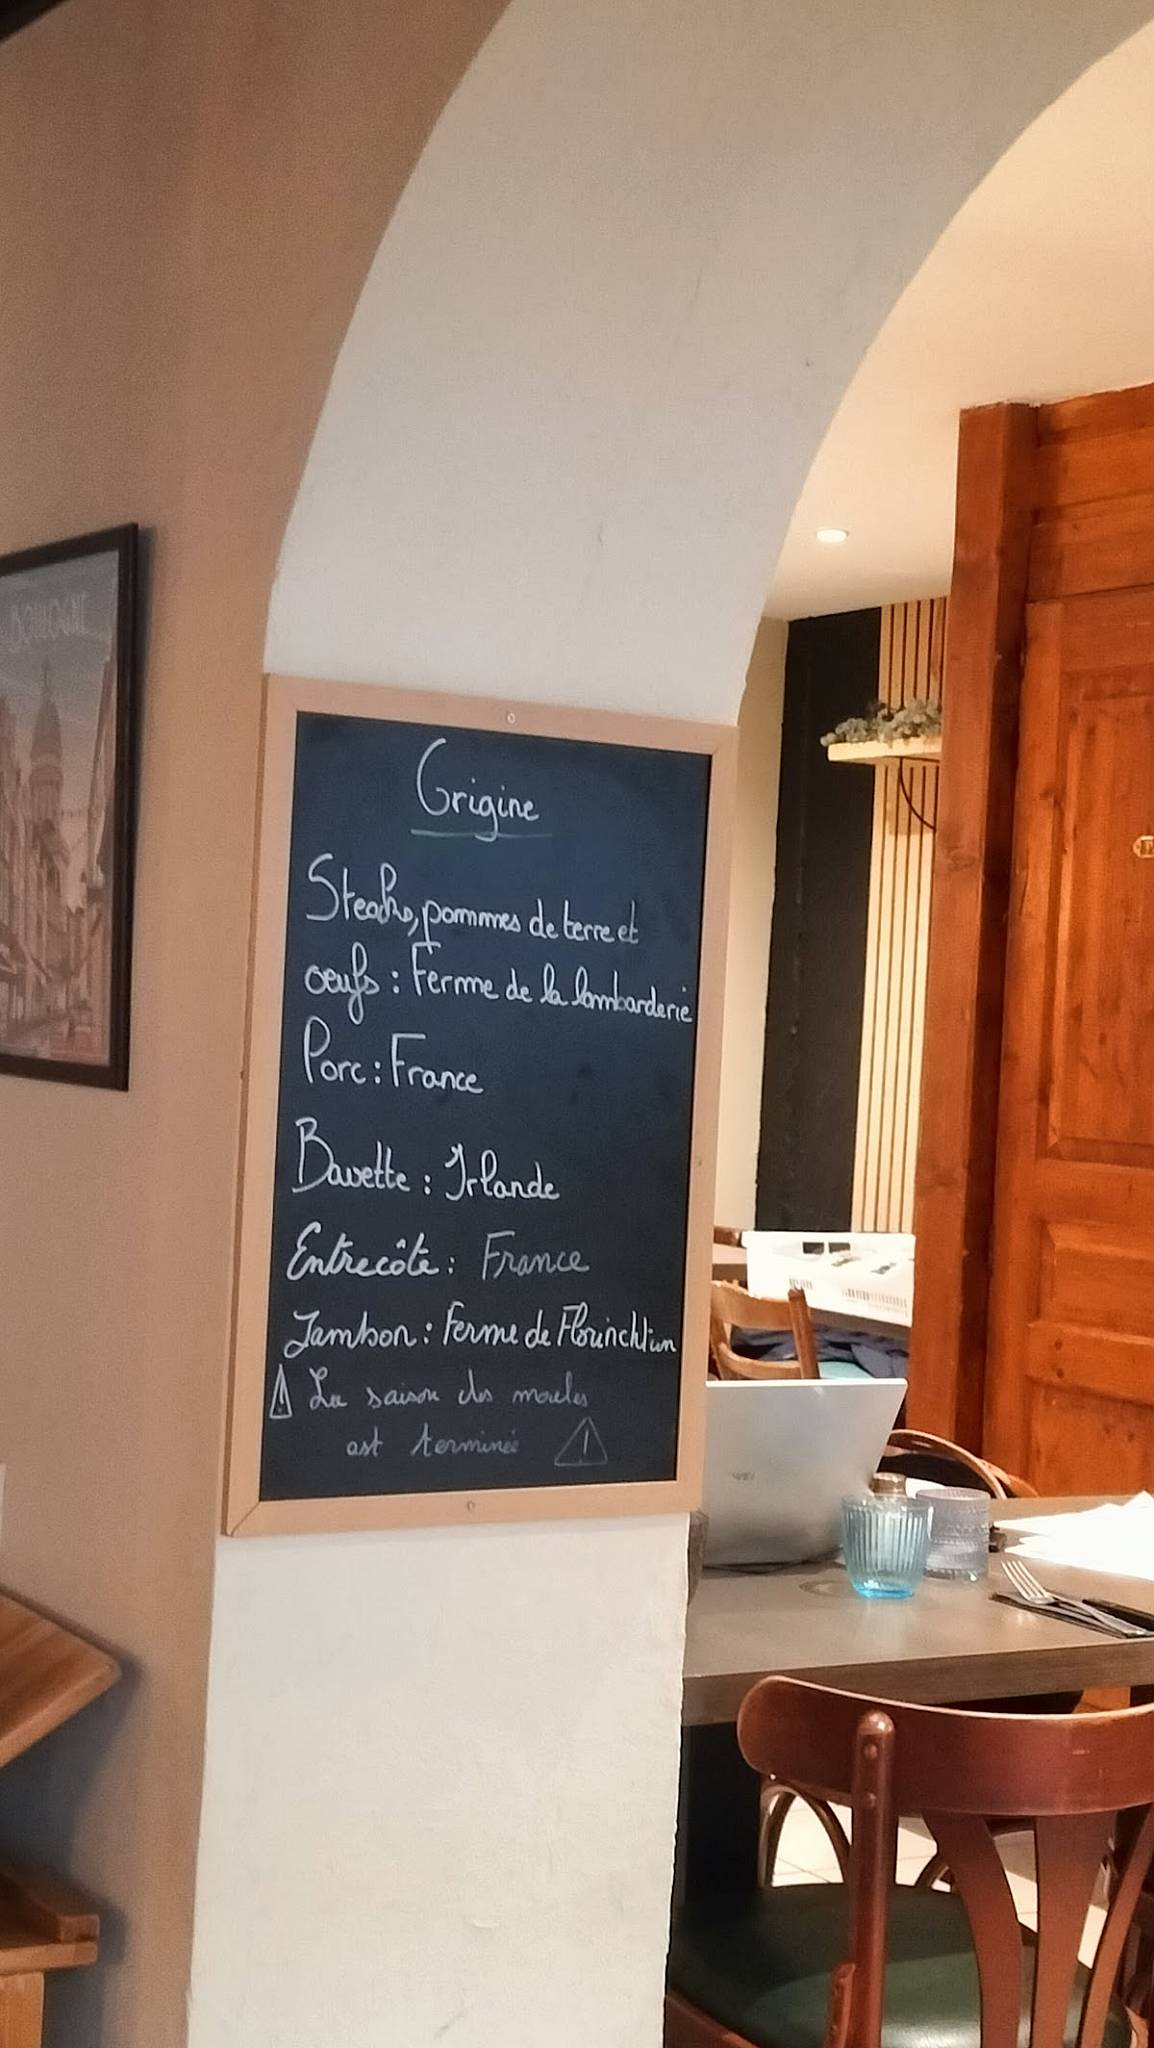 BOULOGNE
Origine
Steaks, pommes de terre et
oeufs : Ferme de la lombarderie
Porc : France
Bavette : Irlande
Entrecôte : France
Jambon : Ferme de Florinchtun
⚠ La saison des moules
est terminée ⚠